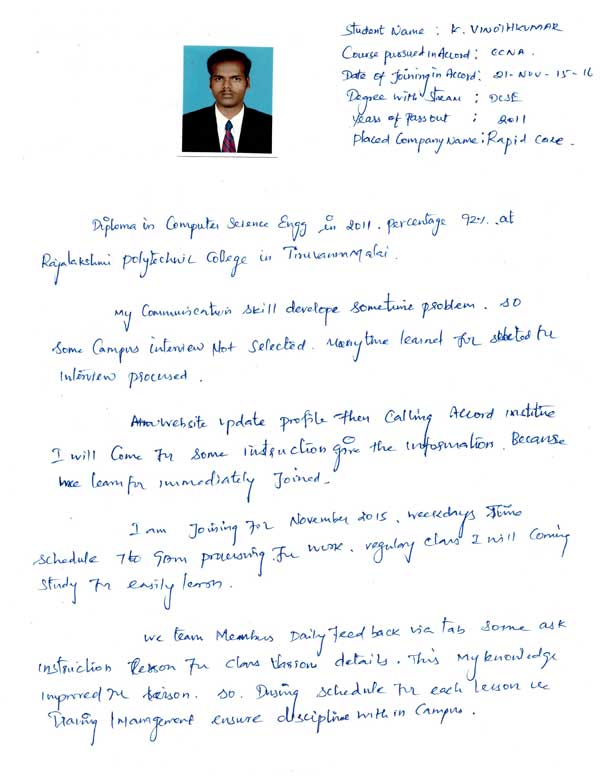 Student Name : K. VINOTHKUMAR
Course pursued in Accord : CCNA.
Date of Joining in Accord : 21-NOV-15-16
Degree with Stream : DCSE
Years of Pass out : 2011
Placed Company Name : Rapid Care.
Diploma in Computer Science Engg in 2011. percentage 92%. at
Rajalakshmi polytechnic College in Tiruvannmalai.
My Communication skill develope sometime problem. so
Some Campus interview Not Selected. Many time learned for selected for
Interview processed.
website update profile then calling Accord institue
I will Come for some instruction give the information. Because
we learn for immediately Joined.
I am Joining for November 2015. weekdays time
schedule 7 to 9am processing for work. regulary class I will coming
study for easily lesson.
we team Members Daily Feed back via tab some ask
instruction lesson for class details. This My knowledge
improved for. so. During schedule for each lesson we
Traing Management ensure discipline with in Campus.